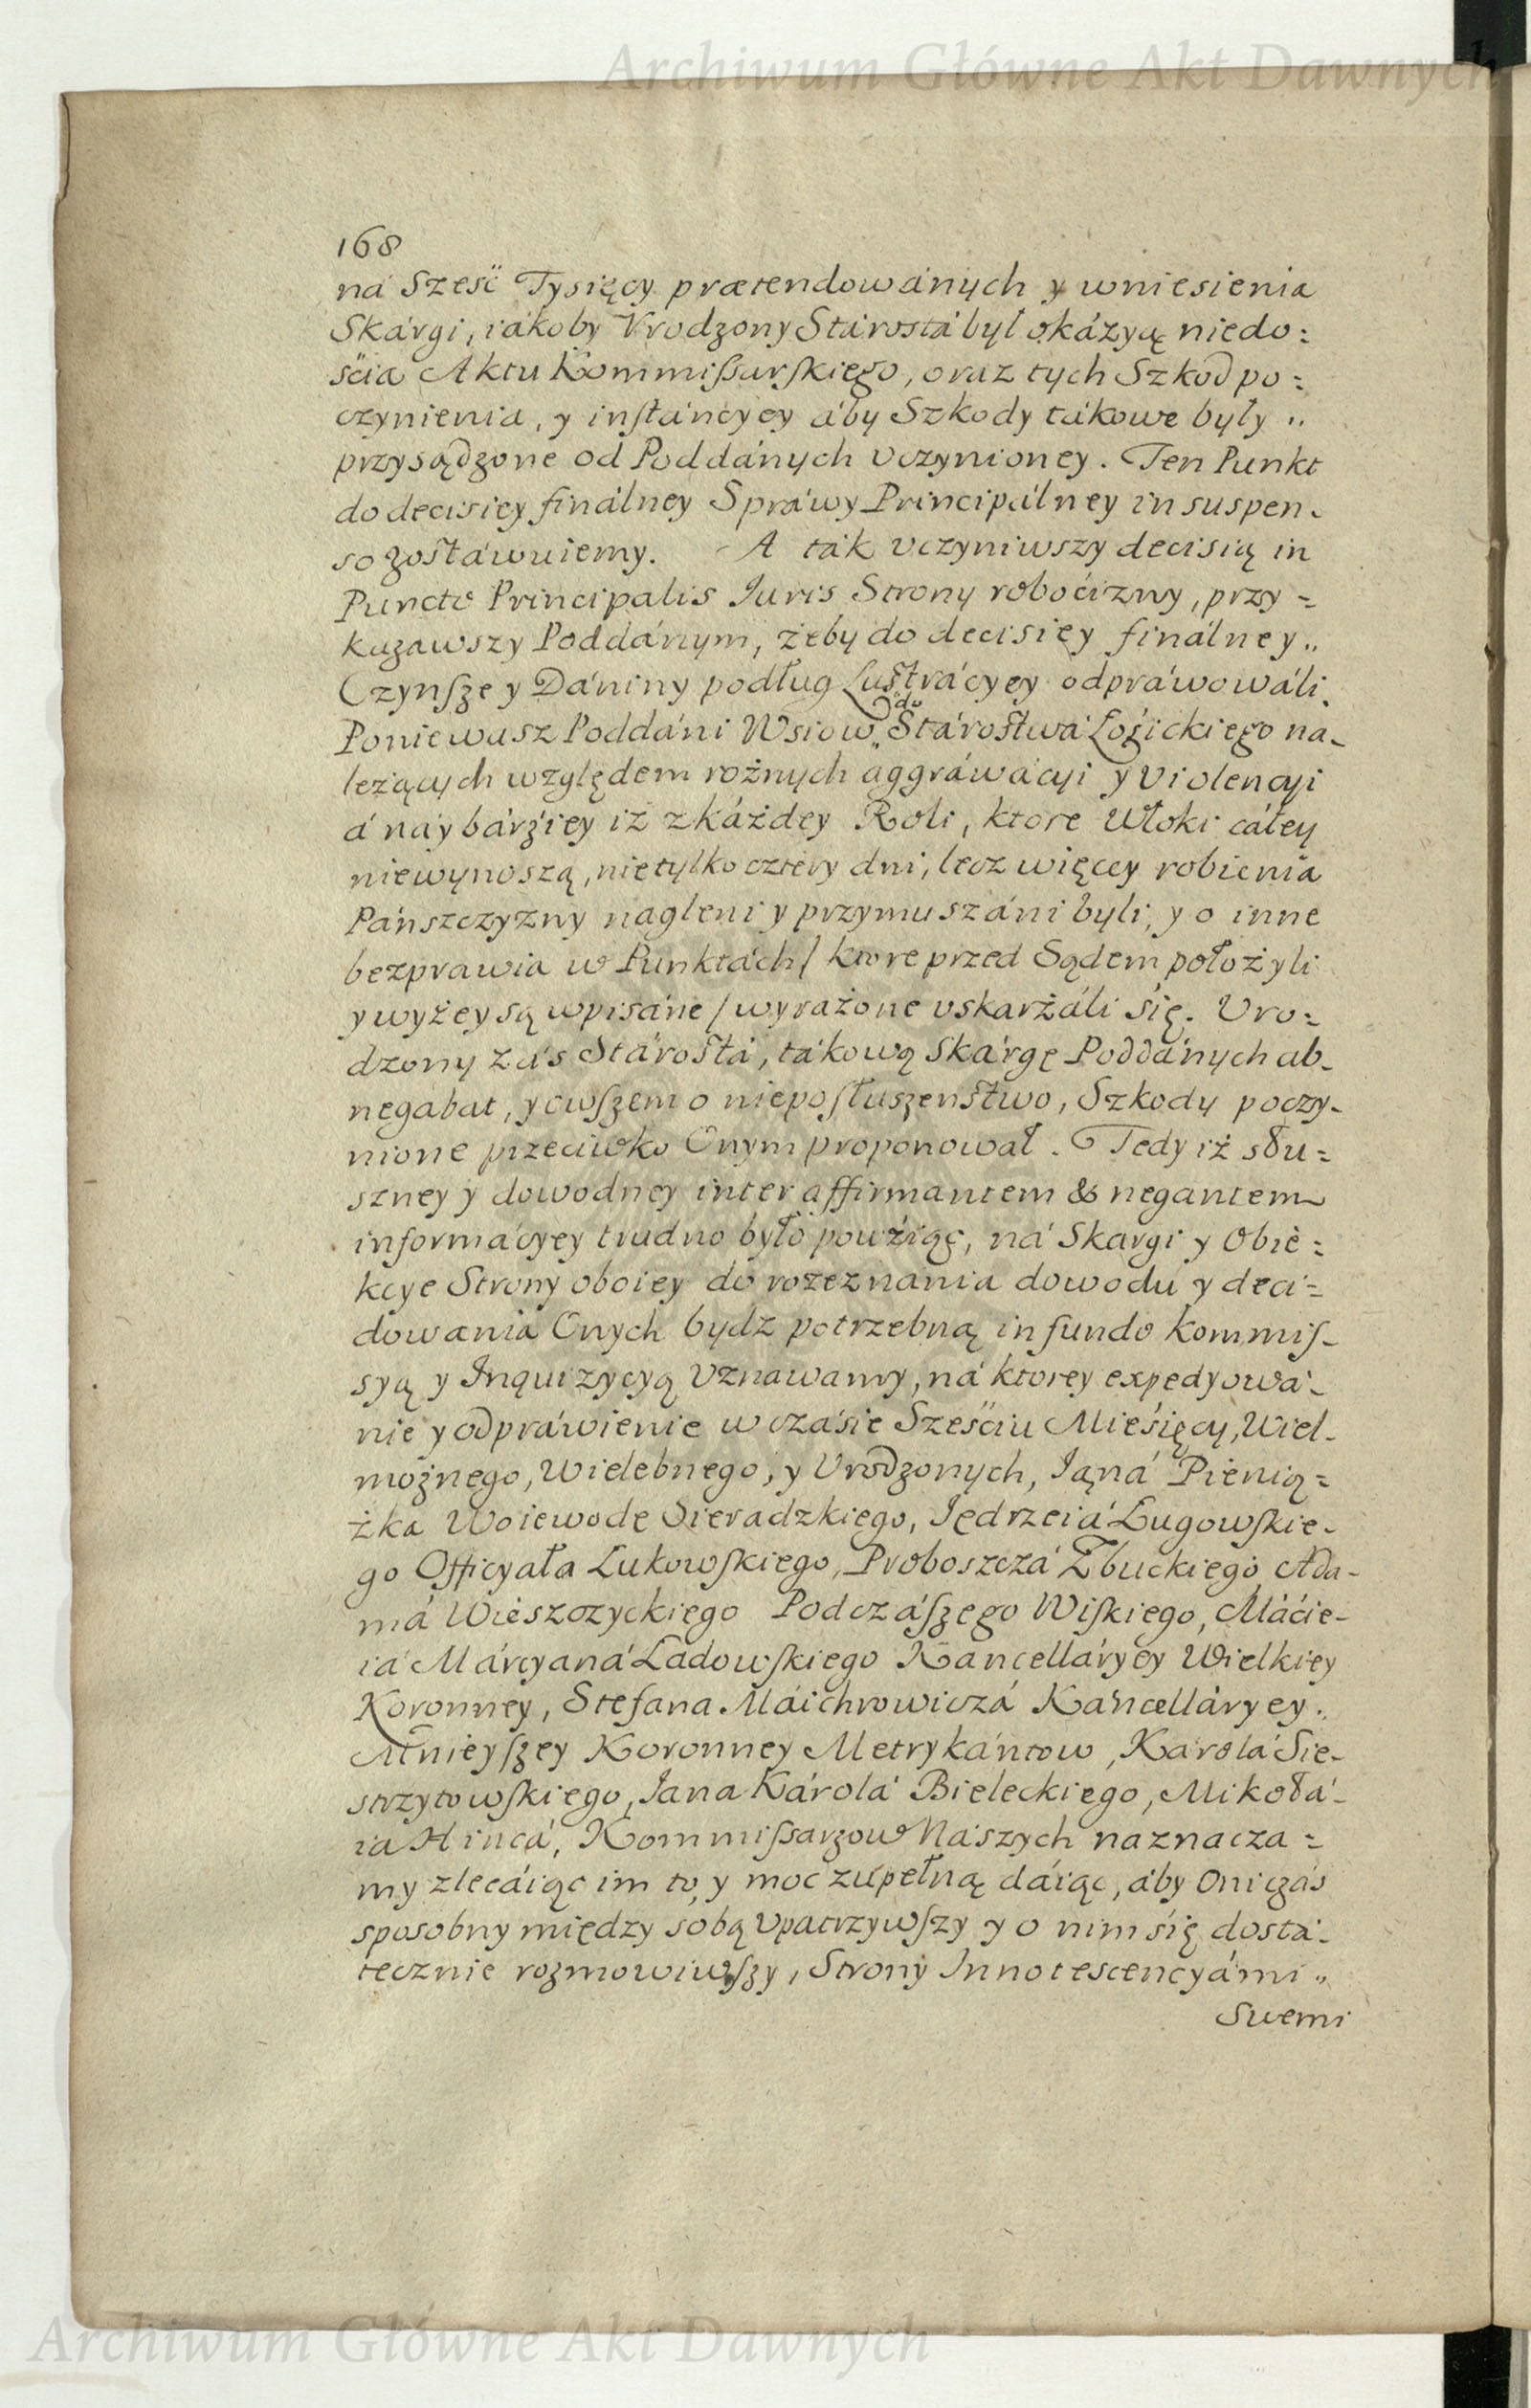 Archiwum Główne Akt Dawnych
168
ná Sześć Tysięcy prætendowánych y wniesienia
Skárgi, iákoby Vrodzony Stárostá był okázyą niedo:
ścia Aktu Kommiſsarſkiego, oraz tych Szkod po:
czynienia, y inſtáncyey áby Szkody tákowe były „
przysądzone od Poddánych vczynioney. Ten Punkt
do decisiey finálney Spráwy Principálney in suspen-
so zostáwuiemy. A ták vczyniwszy decisią in
Puncto Principalis Iuris Strony robocizny, przy=
kazawszy Poddánym, żeby do decisiey finálney „
Czynſze y Dániny podług Lustrácyey odpráwowáli.
Poniewasz Poddáni Wsiow do Stárostwá Łośickiego na-
leżących względem rożnych aggráwácyi y violencyi
á naybárźiey iż z káżdey Roli, ktore Włoki cáłey
niewynoszą, nietylko cztery dni, lecz więcey robienia
Páńszczyzny nagleni y przymuszáni byli, y o inne
bezprawia w Punktách / ktore przed Sądem położyli
y wyżey są wpisáne / wyrażone vskarżáli się. Vro:
dzony záś Stárostá, tákową Skárgę Poddánych ab-
negabat, y owſzem o niepoſłuszeństwo, Szkody poczy-
nione przeciwko Onym proponował. Tedy iż słu=
szney y dowodney inter affirmantem & negantem
informácyey trudno było powźiąć, ná Skargi y Obie=
kcye Strony oboiey do rozeznania dowodu y deci=
dowania Onych bydz potrzebną in fundo kommiſ-
syą y Inquizycyą Vznawamy, ná ktorey expedyowá-
nie y odpráwienie w czásie Sześćiu Mieśięcy, Wiel-
możnego, Wielebnego, y Vrodzonych, Iáná Pienią=
żka Woiewodę Sieradzkiego, Iędrzeiá Ługowſkie-
go Officyała Łukowſkiego, Proboszczá Zbuckiego Ada-
má Wieszczyckiego Podczáſzego Wiſkiego, Máćie-
iá Márcyaná Ładowſkiego Kancelláryey Wielkiey
Koronney, Stefana Máichrowiczá Káncelláryey „
Mnieyſzey Koronney Metrykántow, Károlá Sie-
strzytowſkiego, Iana Károlá Bieleckiego, Mikołá-
ia Hincá, Kommiſsarzow Nászych naznacza=
my zlecáiąc im to, y moc zupełną dáiąc, áby Oni czás
sposobny między sobą vpatrzywſzy y o nim się dostá-
tecznie rozmowiwſzy, Strony Innotescencyámi „
Swemi
Archiwum Główne Akt Dawnych